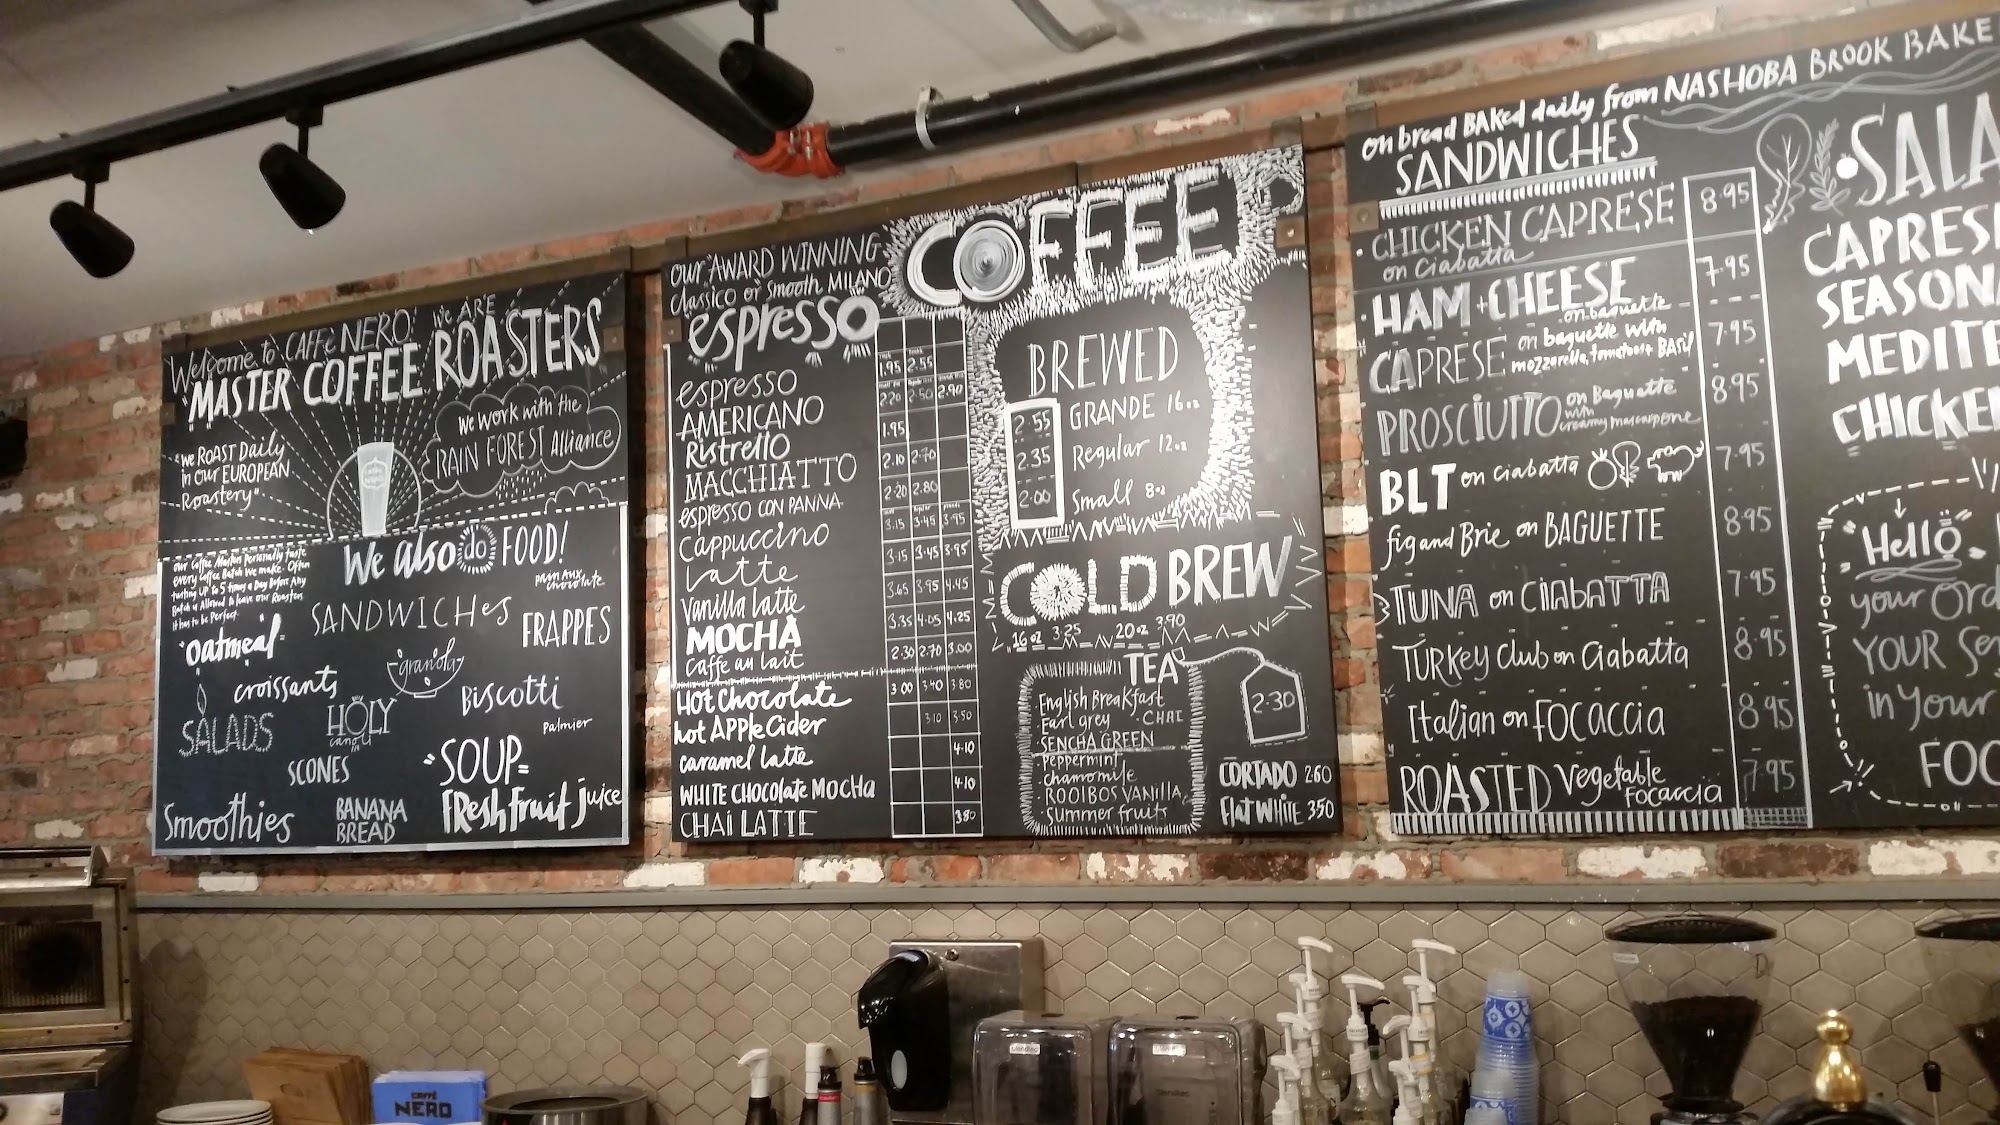 Welcome to CAFFè NERO! We ARE
"MASTER COFFEE ROASTERS
"We ROAST Daily
in our EUROPEAN
Roastery"
We work with the
RAIN FOREST Alliance
our Coffee Masters Personally taste
every Coffee Batch We make. Often
tasting UP to 5 times a Day Before Any
Batch is Allowed to leave our Roastery
It has to be Perfect.
We also do FOOD!
pain Aux
chocolate
SANDWICHes
FRAPPES
"Oatmeal"
granola
croissants
Biscotti
SALADS
HOLY
canoli
palmier
SCONES
"SOUP"
Fresh fruit juice
Smoothies
BANANA
BREAD
COFFEE
our "AWARD WINNING
Classico or Smooth MILANO
espresso
1.95 2.55
espresso
2.20 2.50 2.90
AMERICANO
1.95
Ristretto
2.10 2.70
MACCHIATTO
2.20 2.80
espresso CON PANNA
3.15 3.45 3.95
Cappuccino
3.15 3.45 3.95
Latte
3.65 3.95 4.45
Vanilla latte
3.35 4.05 4.25
MOCHA
2.30 2.70 3.00
Caffe au lait
HOT Chocolate
3.00 3.40 3.80
hot APPle Cider
3.10 3.50
caramel latte
4.10
WHITE CHOCOLate MOCHa
4.10
CHAI LATTE
3.80
BREWED
2.55 GRANDE 16oz
2.35 Regular 12oz
2.00 Small 8oz
COLD BREW
16oz 3.25 20oz 3.90
TEA
2.30
English Breakfast
Earl grey · CHAI
· SENCHA GREEN
· Peppermint
· chamomile
· ROOIBOS VANILLA
· Summer fruits
CORTADO 2.60
Flat WHITE 3.50
on bread BAKed daily from NASHOBA BROOK BAKE
SANDWICHES
· CHICKEN CAPRESE 8.95
on Ciabatta
· HAM + CHEESE 7.95
on baguette
CAPRESE on baguette with 7.95
mozzorella, tomatoes + BASil
PROSCIUTTO on Baguette 8.95
with
creamy mascarpone
BLT on ciabatta 7.95
fig and Brie on BAGUETTE 8.95
TUNA on CIABATTA 7.95
TURKey Club on Ciabatta 8.95
Italian on FOCACCIA 8.95
ROASTED Vegetable 7.95
FOCACCIA
SALA
CAPRES
SEASON
MEDITE
CHICKEN
Hello
your ord
YOUR Se
in Your
FOO
CAFFÈ
NERO